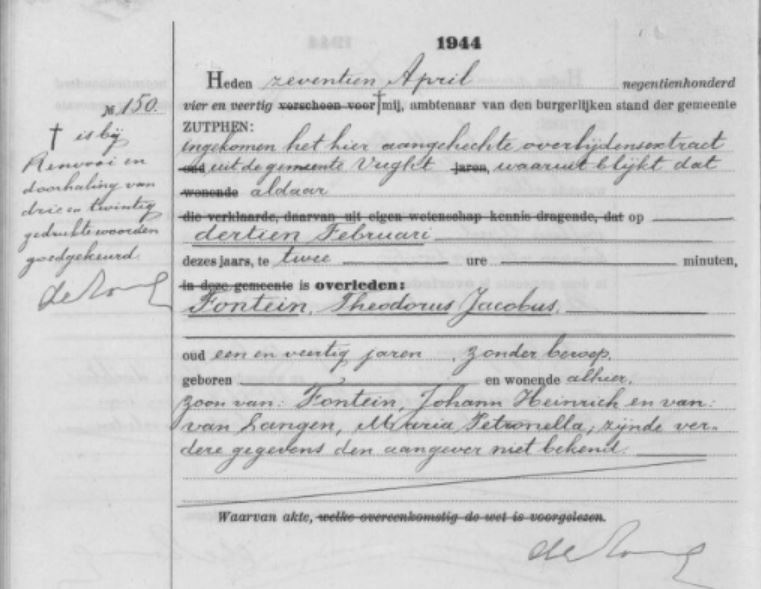 1944
Heden zeventien April negentienhonderd
№ 150.
vier en veertig verscheen voor † mij, ambtenaar van den burgerlijken stand der gemeente
ZUTPHEN:
† is bij
Renvooi en
doorhaling van
drie en twintig
gedrukte woorden
goedgekeurd.
ingekomen het hier aangehechte overlijdensextract
oud uit de gemeente Vught jaren, waaruit blijkt dat
wonende aldaar
die verklaarde, daarvan uit eigen wetenschap kennis dragende, dat op
dertien Februari
dezes jaars, te twee ure minuten,
in deze gemeente is overleden:
Fontein, Theodorus Jacobus,
oud een en veertig jaren, zonder beroep,
geboren en wonende alhier,
zoon van: Fontein, Johann Heinrich en van:
van Langen, Maria Petronella; zijnde ver-
dere gegevens den aangever niet bekend.
Waarvan akte, welke overeenkomstig de wet is voorgelezen.